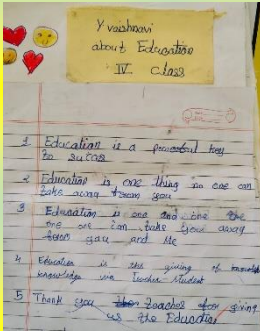 Y vaishnavi
about Education
IV class
1 Education is a powerful key
to
2 Education is one thing no one can
take away from you
3 Education is one and one the
one one can take your away
from you and Me
4 Education is the giving of
knowledge via Teacher student
5 Thank you teacher for giving
us the Education